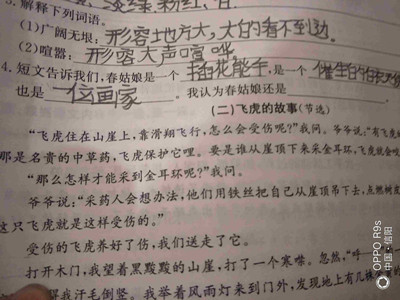 3.解释下列词语。
(1)广阔无垠:形容地方大,大的看不到边.
(2)喧嚣:形容大声喧哗
4.短文告诉我们,春姑娘是一个插花能手,是一个
也是一位画家。我认为春姑娘还是
(二)飞虎的故事(节选)
“飞虎住在山崖上,靠滑翔飞行,怎么会受伤呢?”我问。爷爷说:“有飞虎
那是名贵的中草药,飞虎保护它哩。要是谁从崖顶下来采金耳环,飞虎就会
“那么怎样才能采到金耳环呢?”我问。
爷爷说:“采药人会想办法,他们用铁丝把自己从崖顶吊下去,点燃树皮
这只飞虎就是这样受伤的。”
受伤的飞虎养好了伤,我们送走了它。
打开木门,我望着黑黢黢的山崖,打了一个寒噤。忽然,“呼
得我汗毛倒竖。我举着风雨灯来到门外,发现地上有几
OPPO R9s
中国·信阳